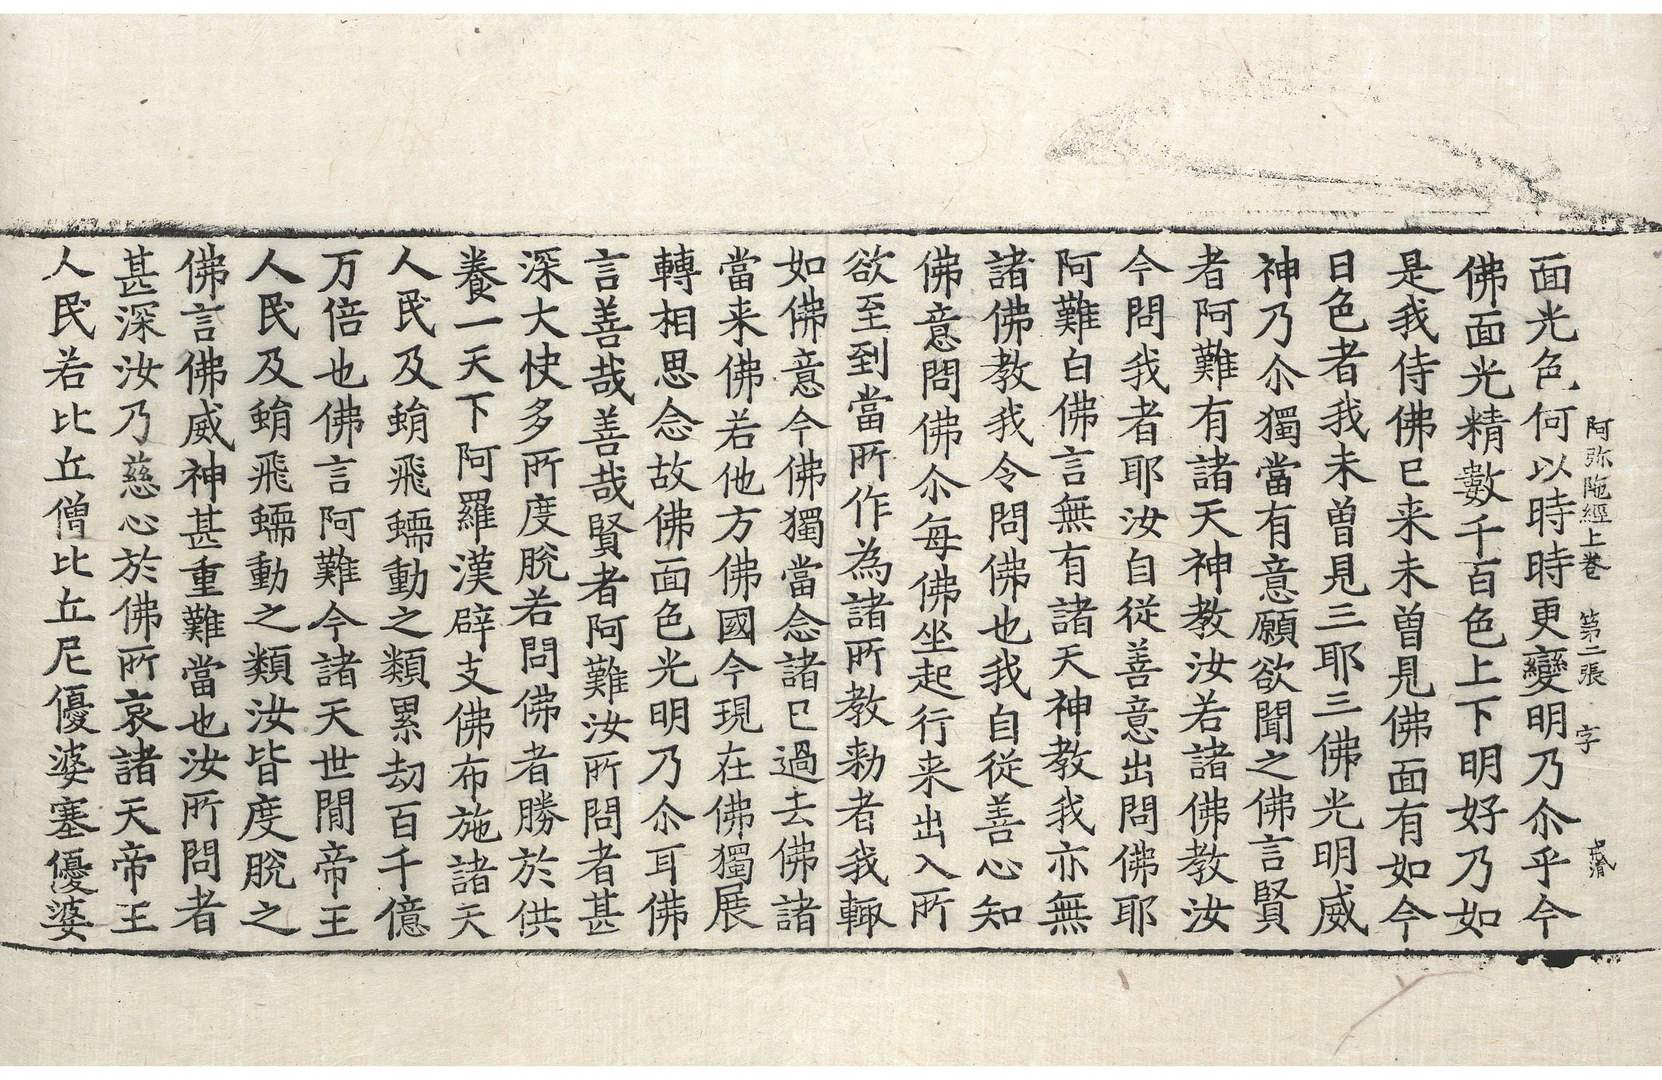 阿弥陁經上巻 第二張 字
面光色何以時時更變明乃尒乎今
佛面光精數千百色上下明好乃如
是我侍佛已来未曾見佛面有如今
日色者我未曾見三耶三佛光明威
神乃尒獨當有意願欲聞之佛言賢
者阿難有諸天神教汝若諸佛教汝
今問我者耶汝自從善意出問佛耶
阿難白佛言無有諸天神教我亦無
諸佛教我令問佛也我自從善心知
佛意問佛尒每佛坐起行来出入所
欲至到當所作為諸所教勑者我輙
如佛意今佛獨當念諸已過去佛諸
當来佛若他方佛國今現在佛獨展
轉相思念故佛面色光明乃尒耳佛
言善哉善哉賢者阿難汝所問者甚
深大快多所度脫若問佛者勝於供
養一天下阿羅漢辟支佛布施諸天
人民及蜎飛蠕動之類累劫百千億
万倍也佛言阿難今諸天世間帝王
人民及蜎飛蠕動之類汝皆度脫之
佛言佛威神甚重難當也汝所問者
甚深汝乃慈心於佛所哀諸天帝王
人民若比丘僧比丘尼優婆塞優婆